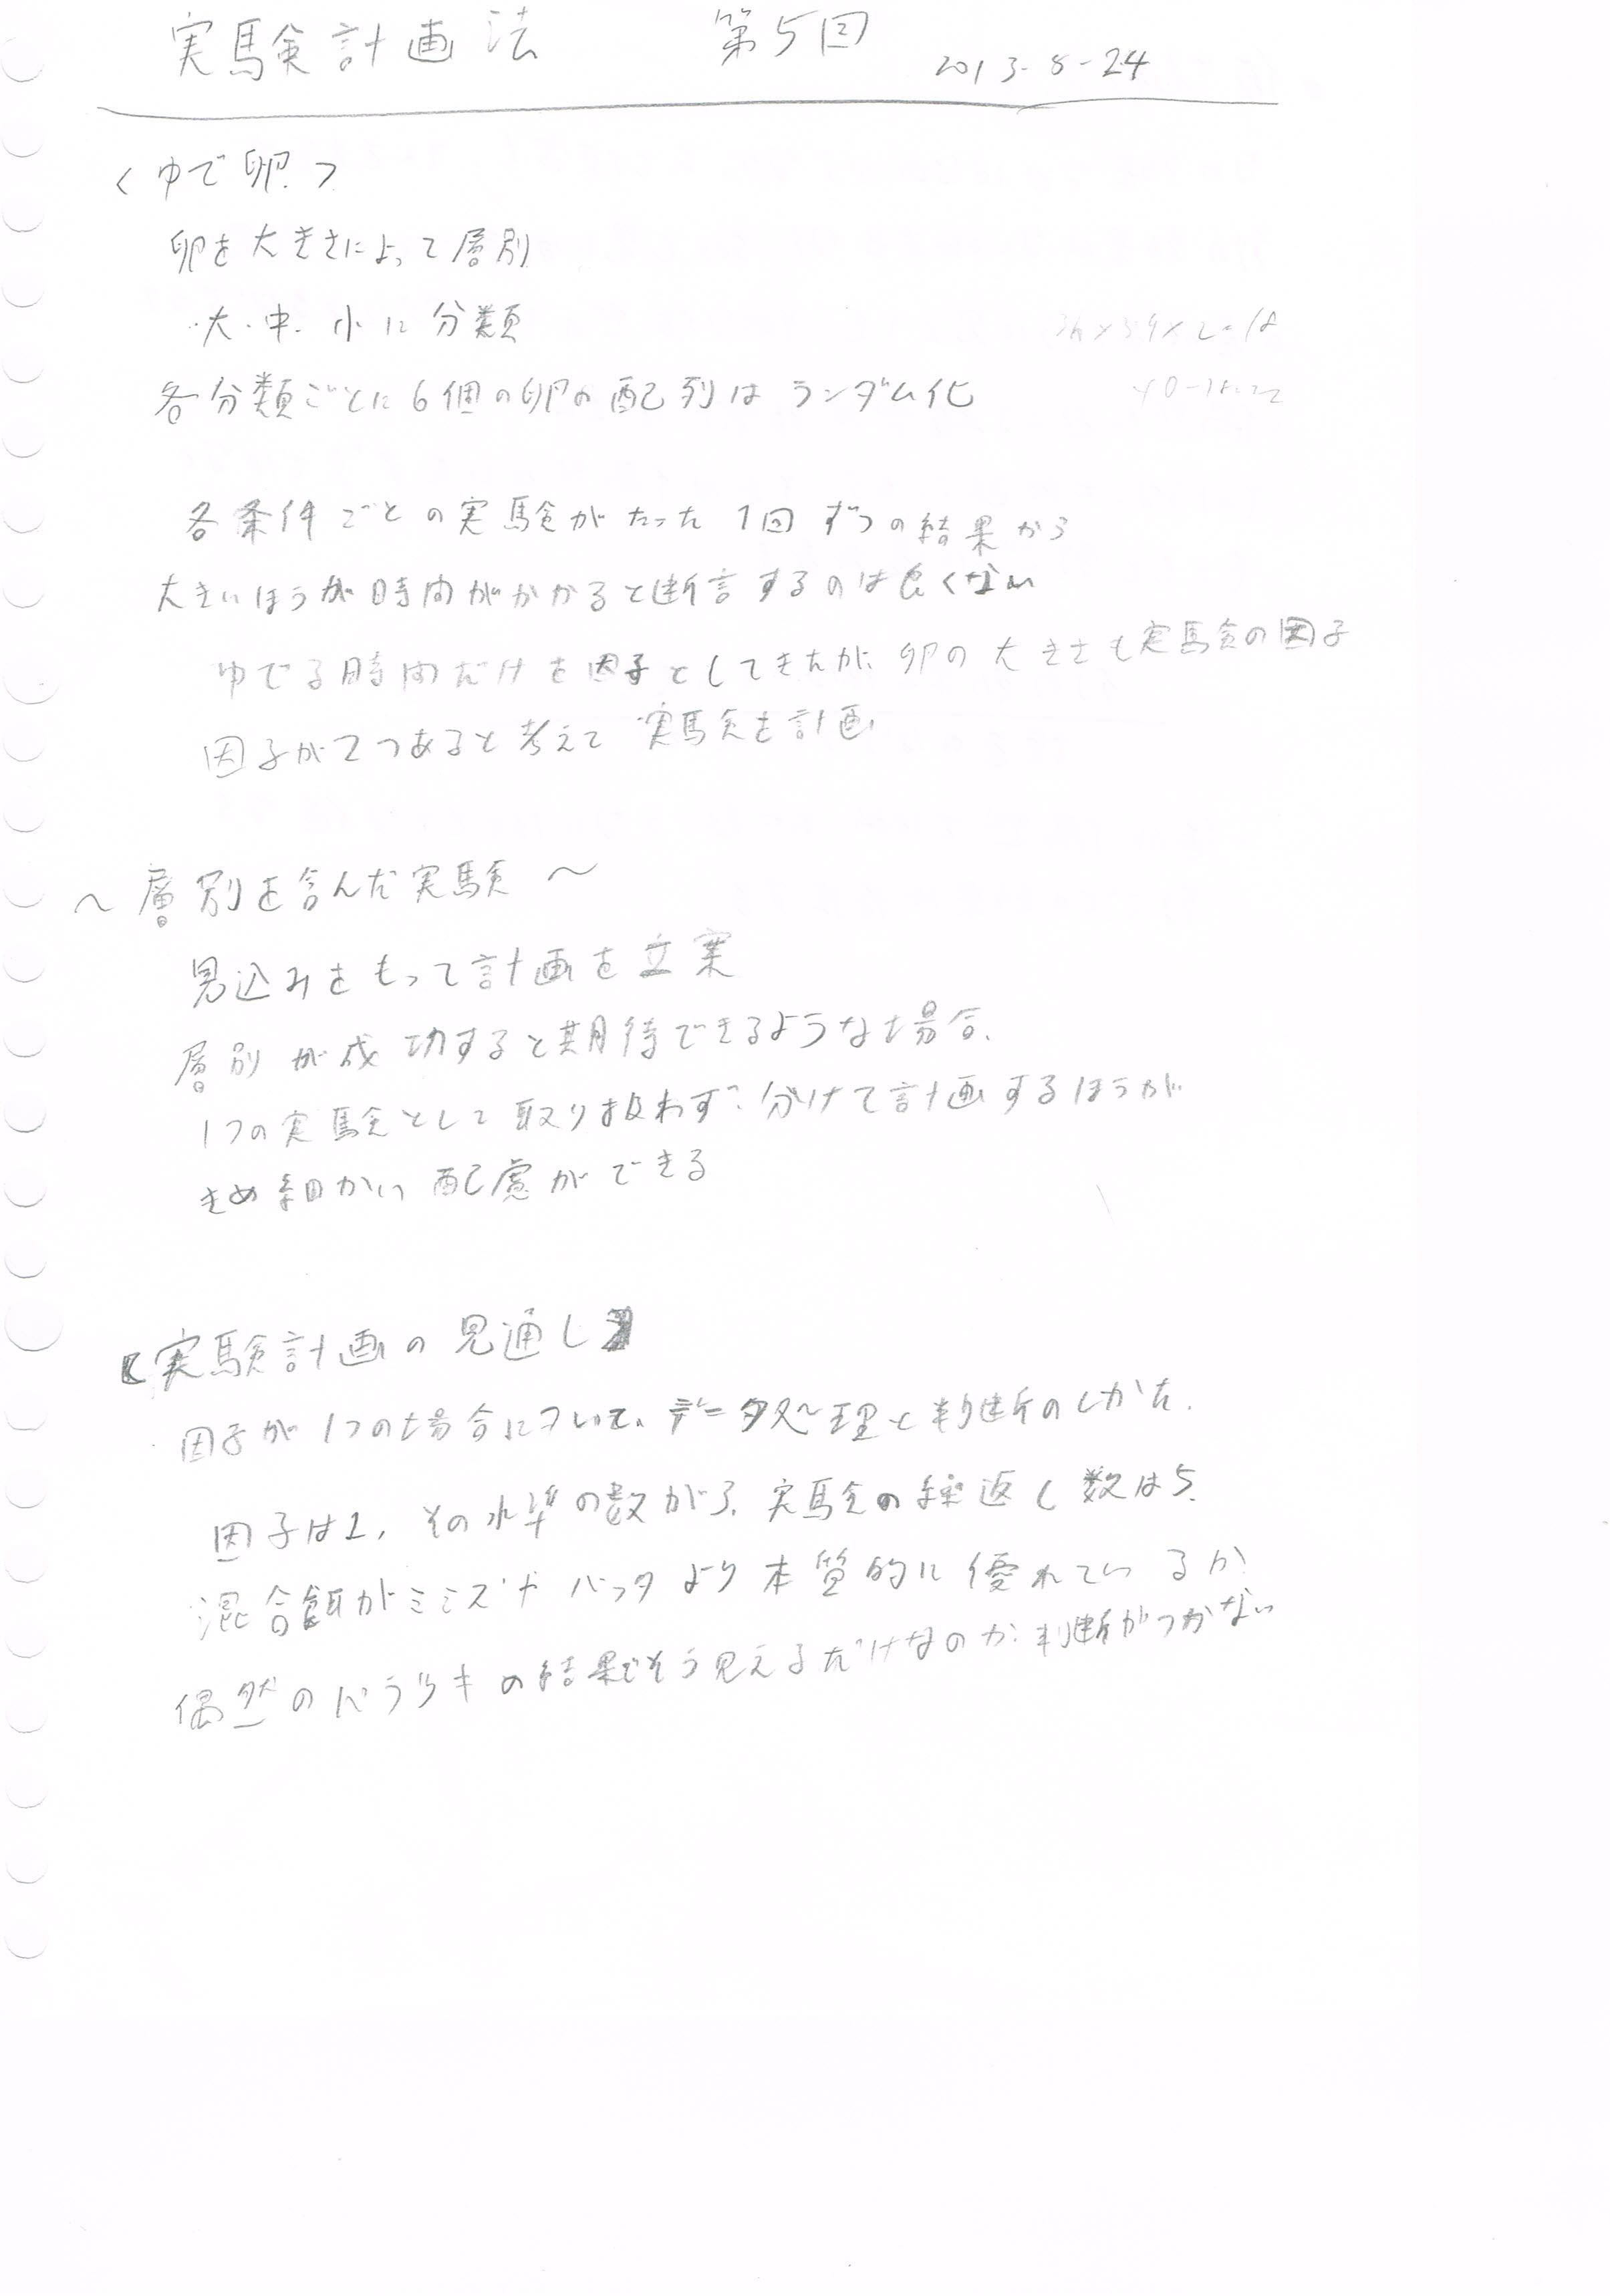 実験計画法 第5回 2013-8-24
<ゆで卵>
卵を大きさによって層別
・大・中・小に分類
各分類ごとに6個の卵の配列はランダム化
各条件ごとの実験がたった1回ずつの結果から
大きいほうが時間がかかると断言するのは良くない
ゆでる時間だけを因子としてきたが、卵の大きさも実験の因子
因子が2つあると考えて実験を計画
～層別を含んだ実験～
見込みをもって計画を立案
層別が成功すると期待できるような場合、
1つの実験として取り扱わず、分けて計画するほうが
きめ細かい配慮ができる
【実験計画の見通し】
因子が1つの場合について、データ処理と判断のしかた、
因子は1, その水準の数が3, 実験の繰返し数は5,
混合餌がミミズやバッタより本質的に優れているか
偶然のバラツキの結果でそう見えるだけなのか、判断がつかない